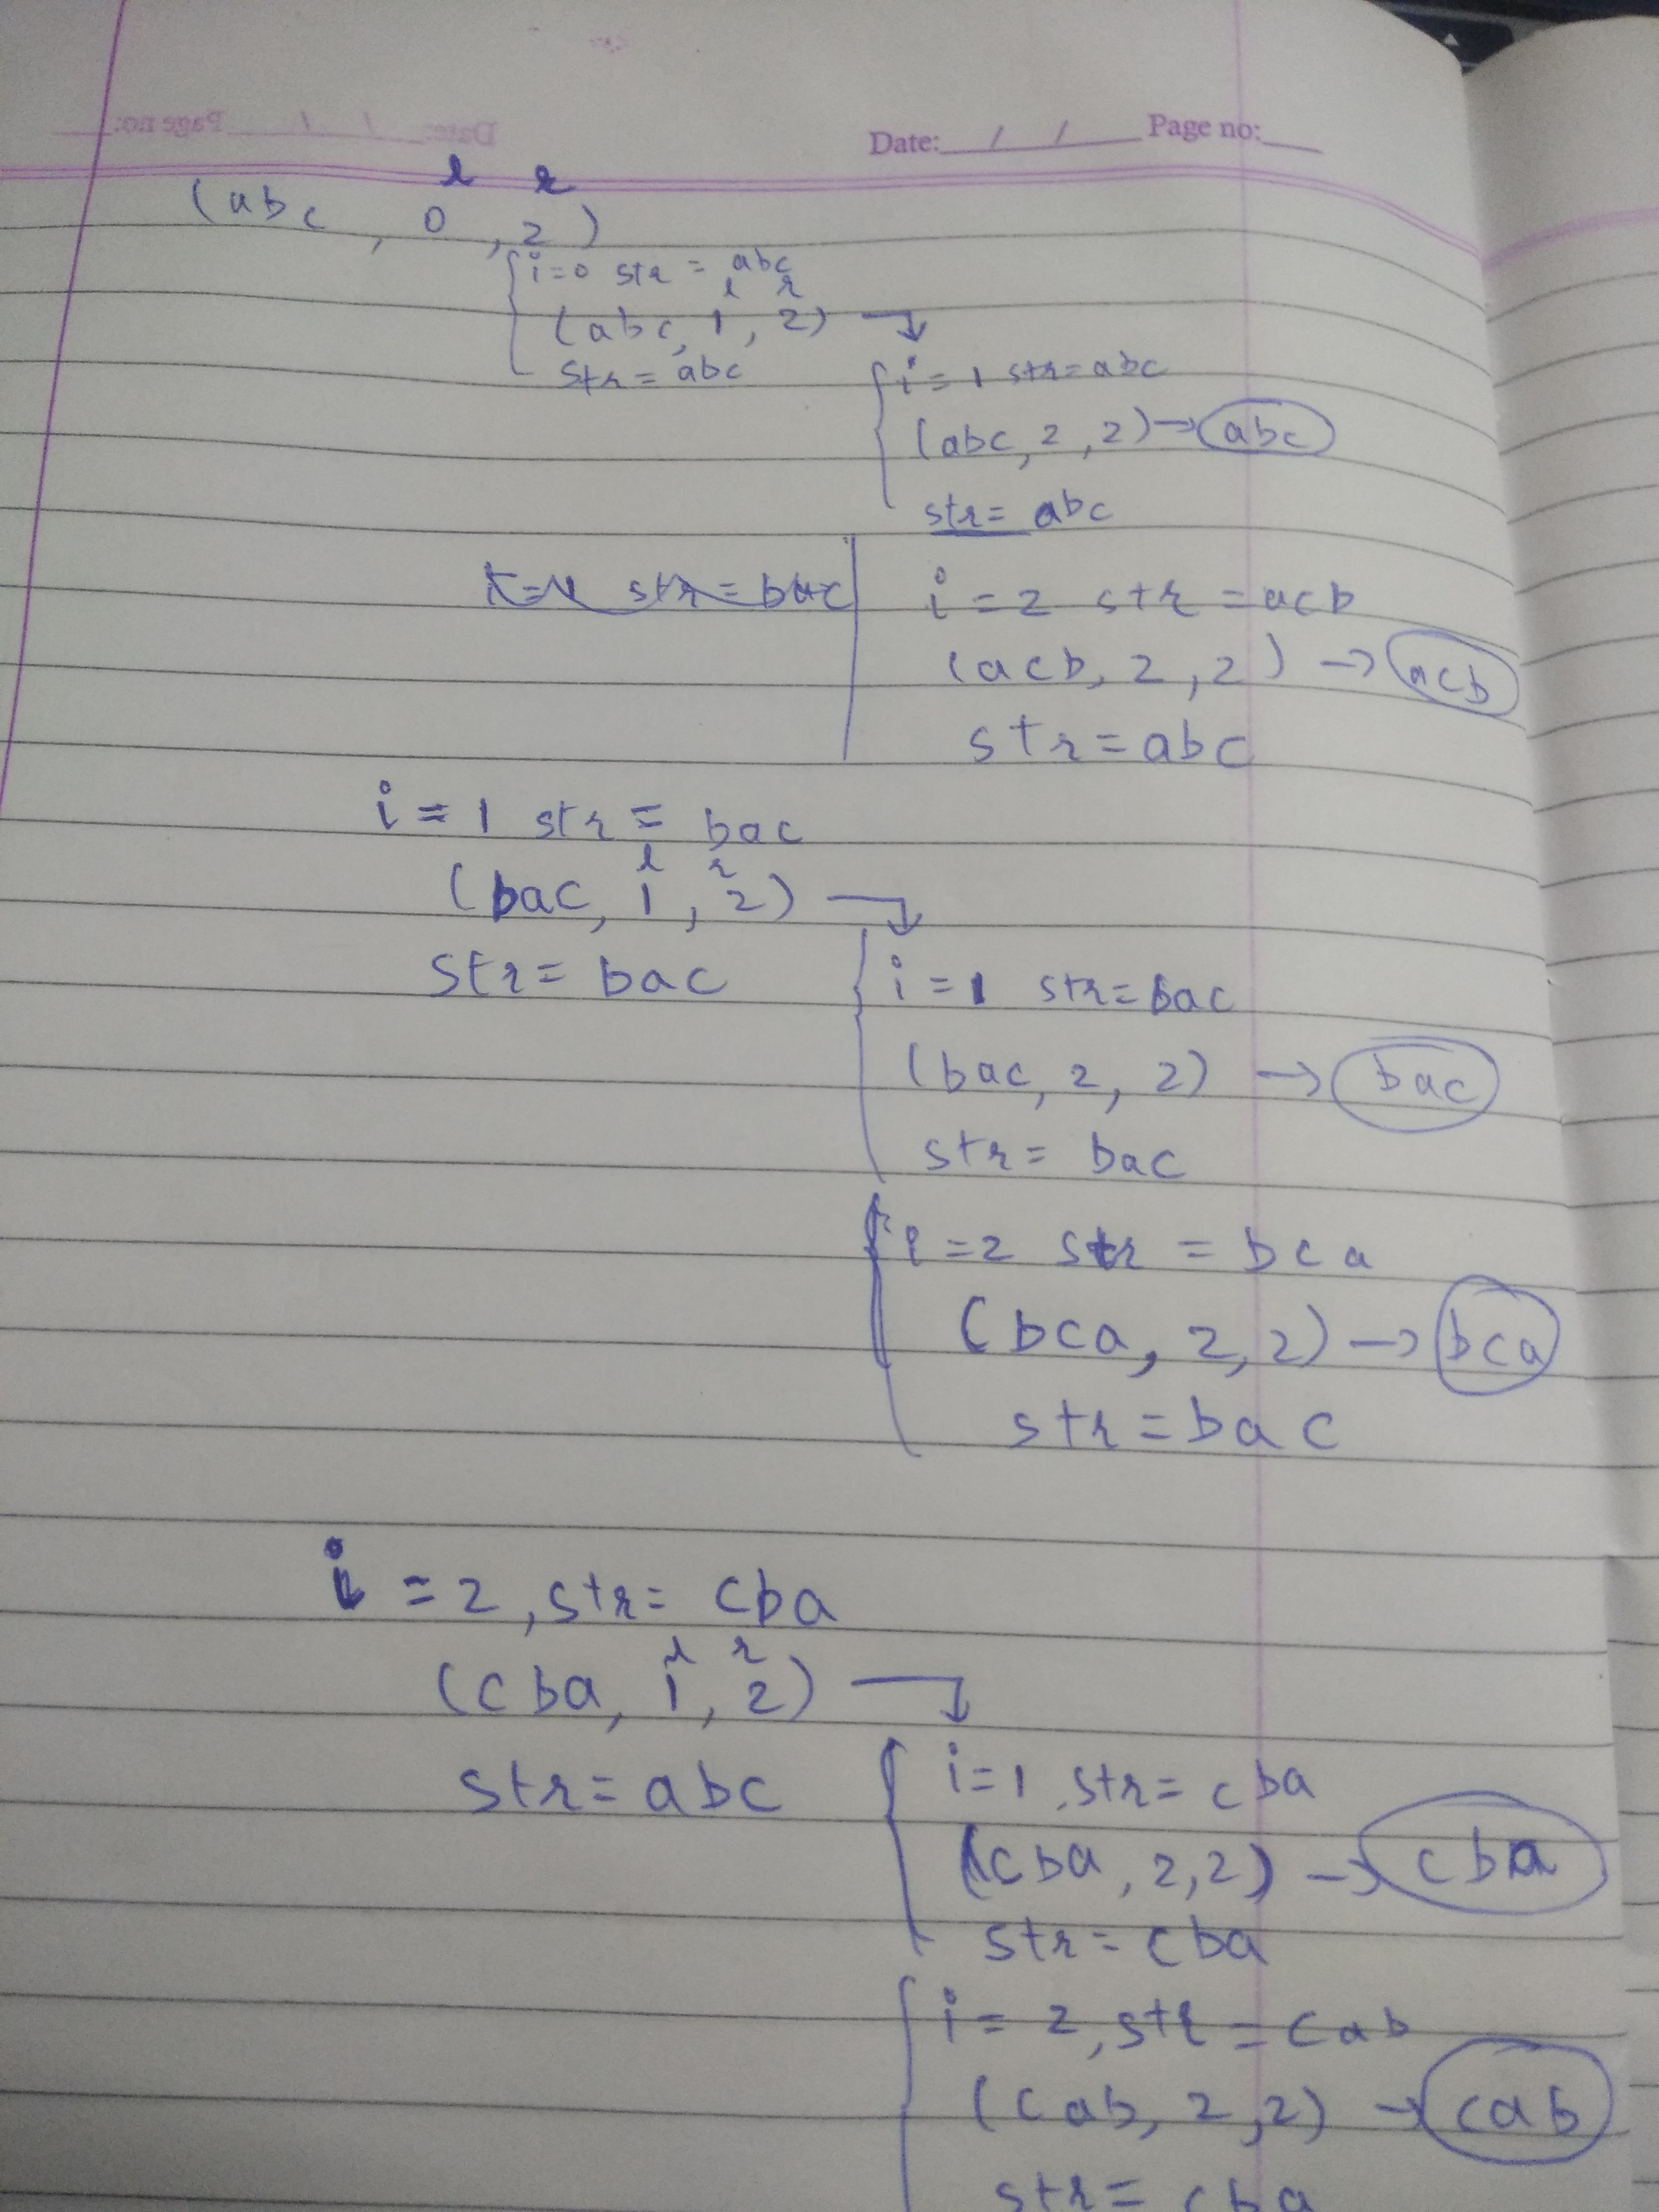 Date: / / Page no:
l r
(abc, 0, 2)
i=0 str = abc
l r
(abc, 1, 2) →
str = abc
i = 1 str = abc
(abc, 2, 2) → abc
str = abc
str = bac
i = 2 str = acb
(acb, 2, 2) → acb
str = abc
i = 1 str = bac
l r
(bac, 1, 2) →
str = bac
i = 1 str = bac
(bac, 2, 2) → bac
str = bac
i = 2 str = bca
(bca, 2, 2) → bca
str = bac
i = 2, str = cba
l r
(cba, 1, 2) →
str = abc
i = 1, str = cba
(cba, 2, 2) → cba
str = cba
i = 2, str = cab
(cab, 2, 2) → cab
str = cba